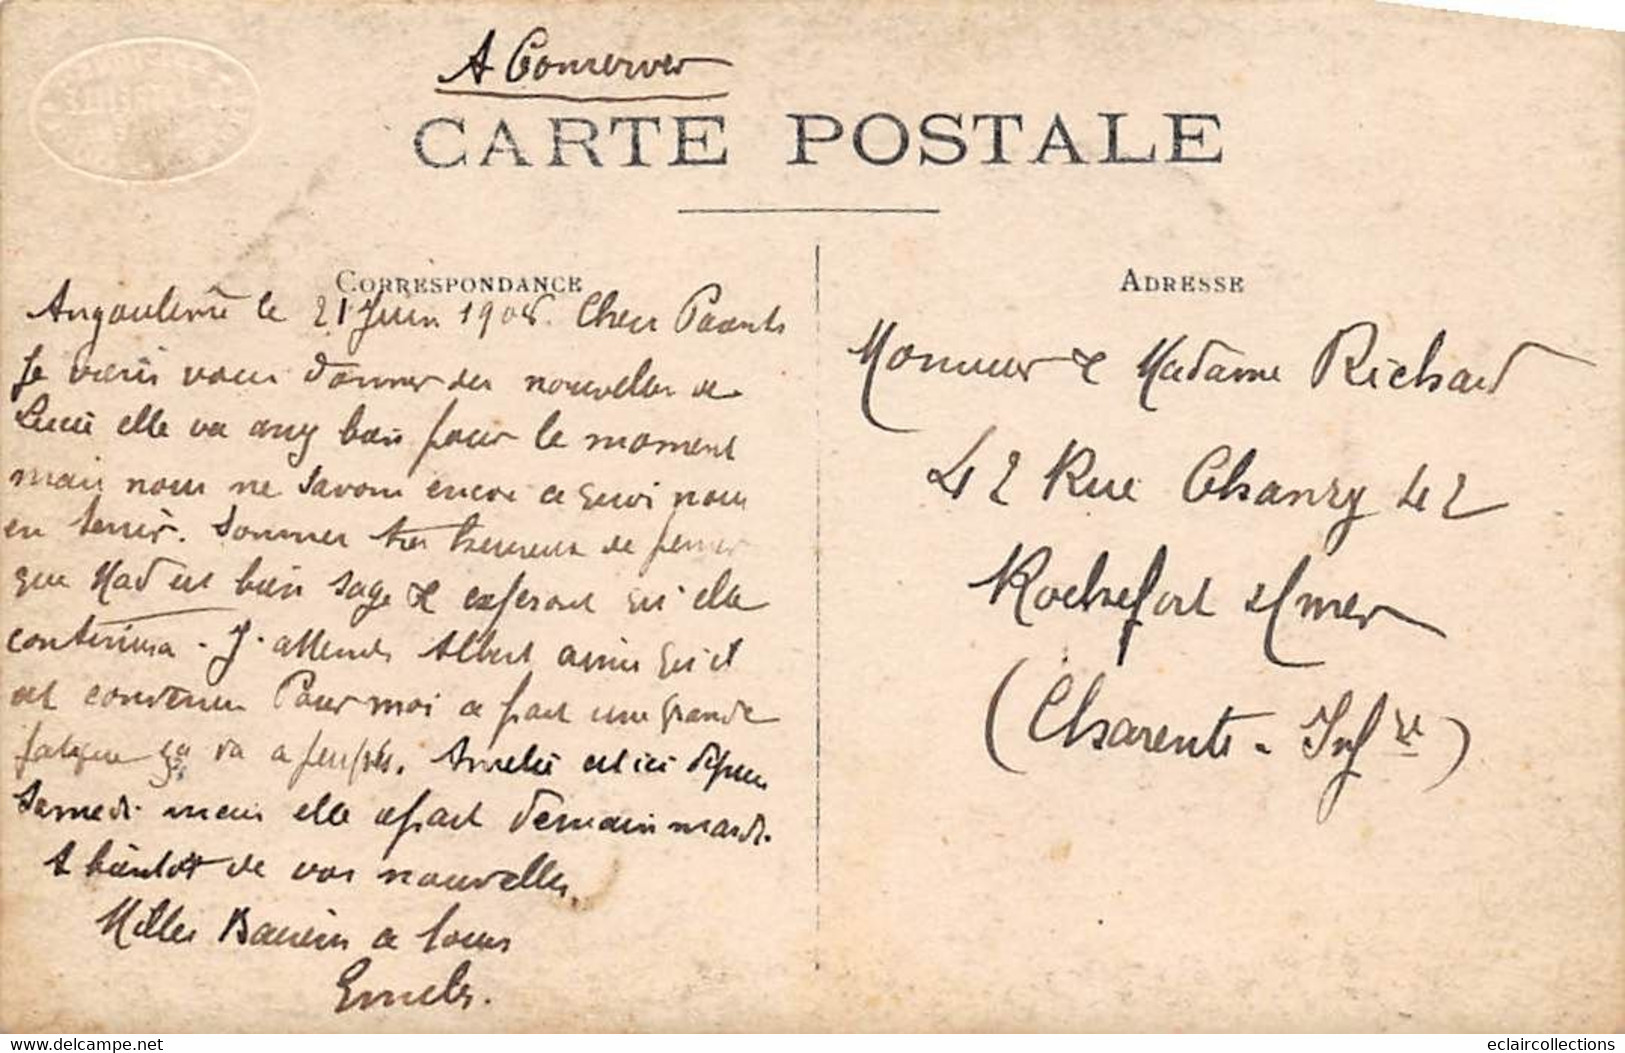 A Conserver
CARTE POSTALE
CORRESPONDANCE
Angoulême le 21 Juin 1908. Chers Parents
Je viens vous donner des nouvelles de
Lucie elle va assez bien pour le moment
mais nous ne savons encore a quoi nous
en tenir. Sommes très heureux de penser
que Mad est bien sage & espérons qu'elle
continuera - J'attends Albert ainsi qu'il
est convenu Pour moi a part une grande
fatigue ça va a peu près. Amélie est ici depuis
Samedi mais elle repart demain mardi.
A bientôt de vos nouvelles,
Milles Baisers a tous
ADRESSE
Monsieur & Madame Richard
42 Rue Chanzy 42
Rochefort s/mer
(Charente - Infre)
eclaircollections